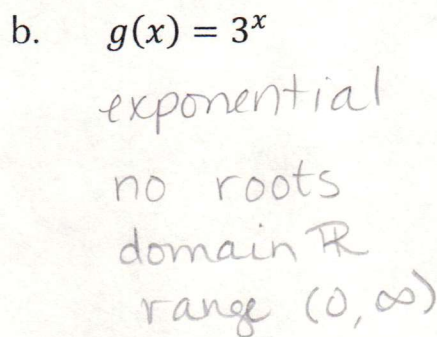 b. g(x) = 3ˣ
exponential
no roots
domain ℝ
range (0, ∞)